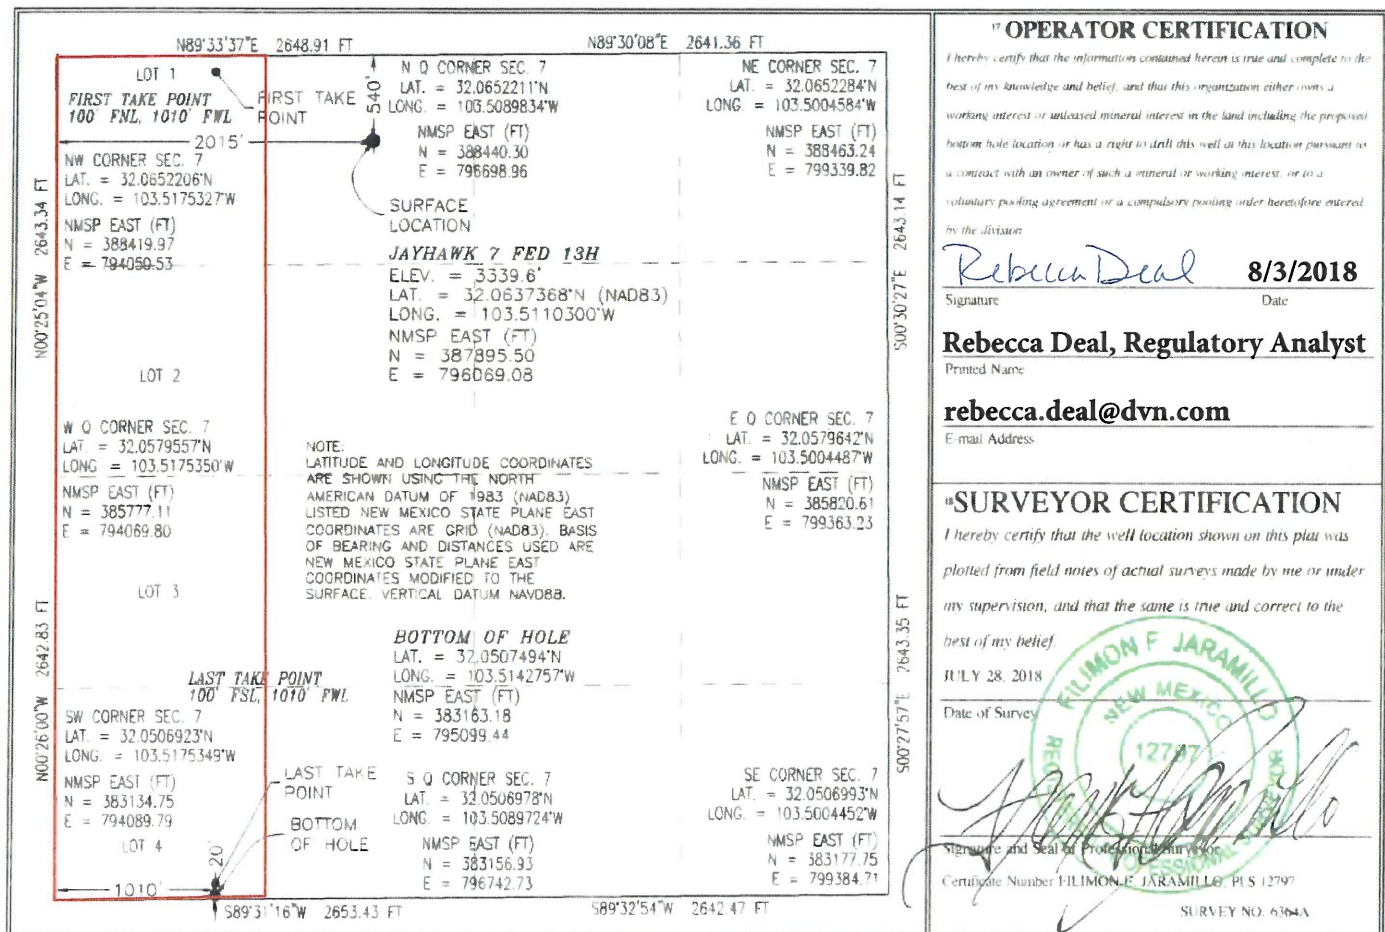 N89°33'37"E 2648.91 FT
N89°30'08"E 2641.36 FT
LOT 1
FIRST TAKE POINT
100' FNL, 1010' FWL
FIRST TAKE
POINT
540'
2015'
N Q CORNER SEC. 7
LAT. = 32.0652211°N
LONG. = 103.5089834°W
NMSP EAST (FT)
N = 388440.30
E = 796698.96
NE CORNER SEC. 7
LAT. = 32.0652284°N
LONG. = 103.5004584°W
NMSP EAST (FT)
N = 388463.24
E = 799339.82
NW CORNER SEC. 7
LAT. = 32.0652206°N
LONG. = 103.5175327°W
NMSP EAST (FT)
N = 388419.97
E = 794050.53
SURFACE
LOCATION
N00°25'04"W 2643.34 FT
S00°30'27"E 2643.14 FT
JAYHAWK 7 FED 13H
ELEV. = 3339.6'
LAT. = 32.0637368°N (NAD83)
LONG. = 103.5110300°W
NMSP EAST (FT)
N = 387895.50
E = 796069.08
LOT 2
W Q CORNER SEC. 7
LAT. = 32.0579557°N
LONG. = 103.5175350°W
NMSP EAST (FT)
N = 385777.11
E = 794069.80
NOTE:
LATITUDE AND LONGITUDE COORDINATES
ARE SHOWN USING THE NORTH
AMERICAN DATUM OF 1983 (NAD83)
LISTED NEW MEXICO STATE PLANE EAST
COORDINATES ARE GRID (NAD83). BASIS
OF BEARING AND DISTANCES USED ARE
NEW MEXICO STATE PLANE EAST
COORDINATES MODIFIED TO THE
SURFACE. VERTICAL DATUM NAVD88.
E Q CORNER SEC. 7
LAT. = 32.0579642°N
LONG. = 103.5004487°W
NMSP EAST (FT)
N = 385820.61
E = 799363.23
LOT 3
N00°26'00"W 2642.83 FT
S00°27'57"E 2643.35 FT
BOTTOM OF HOLE
LAT. = 32.0507494°N
LONG. = 103.5142757°W
NMSP EAST (FT)
N = 383163.18
E = 795099.44
LAST TAKE POINT
100' FSL, 1010' FWL
SW CORNER SEC. 7
LAT. = 32.0506923°N
LONG. = 103.5175349°W
NMSP EAST (FT)
N = 383134.75
E = 794089.79
LOT 4
LAST TAKE
POINT
BOTTOM
OF HOLE
20'
1010'
S Q CORNER SEC. 7
LAT. = 32.0506978°N
LONG. = 103.5089724°W
NMSP EAST (FT)
N = 383156.93
E = 796742.73
SE CORNER SEC. 7
LAT. = 32.0506993°N
LONG. = 103.5004452°W
NMSP EAST (FT)
N = 383177.75
E = 799384.71
S89°31'16"W 2653.43 FT
S89°32'54"W 2642.47 FT
17 OPERATOR CERTIFICATION
I hereby certify that the information contained herein is true and complete to the
best of my knowledge and belief, and that this organization either owns a
working interest or unleased mineral interest in the land including the proposed
bottom hole location or has a right to drill this well at this location pursuant to
a contract with an owner of such a mineral or working interest, or to a
voluntary pooling agreement or a compulsory pooling order heretofore entered
by the division
Rebecca Deal 8/3/2018
Signature Date
Rebecca Deal, Regulatory Analyst
Printed Name
rebecca.deal@dvn.com
E-mail Address
18 SURVEYOR CERTIFICATION
I hereby certify that the well location shown on this plat was
plotted from field notes of actual surveys made by me or under
my supervision, and that the same is true and correct to the
best of my belief.
JULY 28, 2018
Date of Survey
FILIMON F. JARAMILLO
NEW MEXICO
12797
Signature and Seal of Professional Surveyor
Certificate Number FILIMON F. JARAMILLO, PLS 12797
SURVEY NO. 6364A